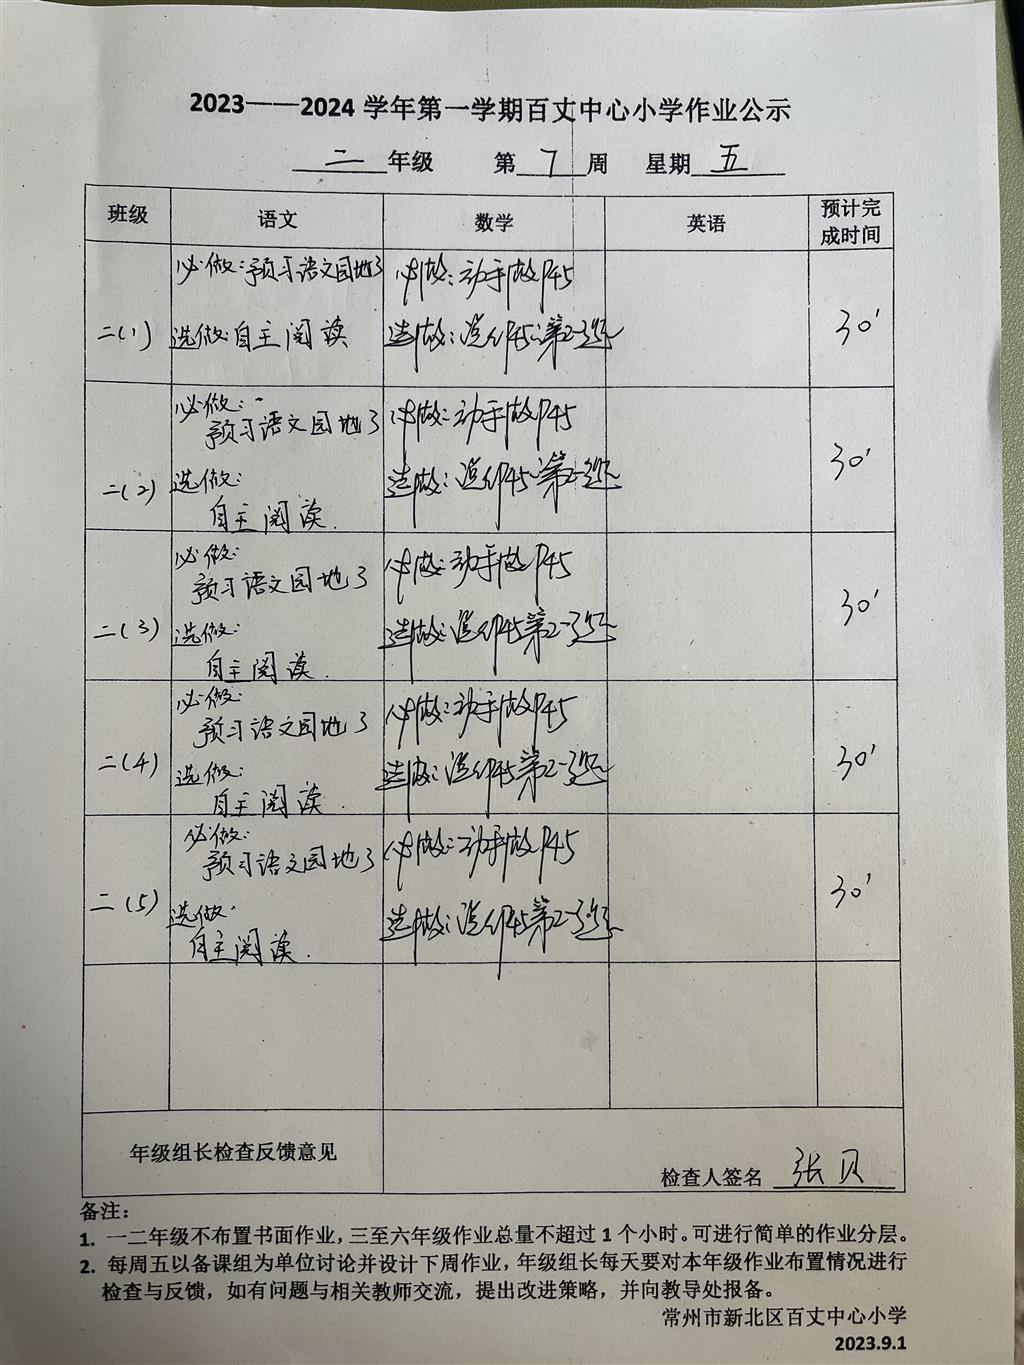 2023——2024 学年第一学期百丈中心小学作业公示
二 年级 第 7 周 星期 五
班级 语文 数学 英语 预计完成时间
二(1)
必做:预习语文园地3
选做:自主阅读
必做:动手做P45
选做:P45第2-3题
30'
二(2)
必做:
预习语文园地3
选做:
自主阅读.
必做:动手做P45
选做:P45第2-3题
30'
二(3)
必做:
预习语文园地3
选做:
自主阅读.
必做:动手做P45
选做:P45第2-3题
30'
二(4)
必做:
预习语文园地3
选做:
自主阅读.
必做:动手做P45
选做:P45第2-3题
30'
二(5)
必做:
预习语文园地3
选做:
自主阅读.
必做:动手做P45
选做:P45第2-3题
30'
年级组长检查反馈意见
检查人签名 张贝
备注:
1. 一二年级不布置书面作业,三至六年级作业总量不超过 1 个小时。可进行简单的作业分层。
2. 每周五以备课组为单位讨论并设计下周作业,年级组长每天要对本年级作业布置情况进行
检查与反馈,如有问题与相关教师交流,提出改进策略,并向教导处报备。
常州市新北区百丈中心小学
2023.9.1